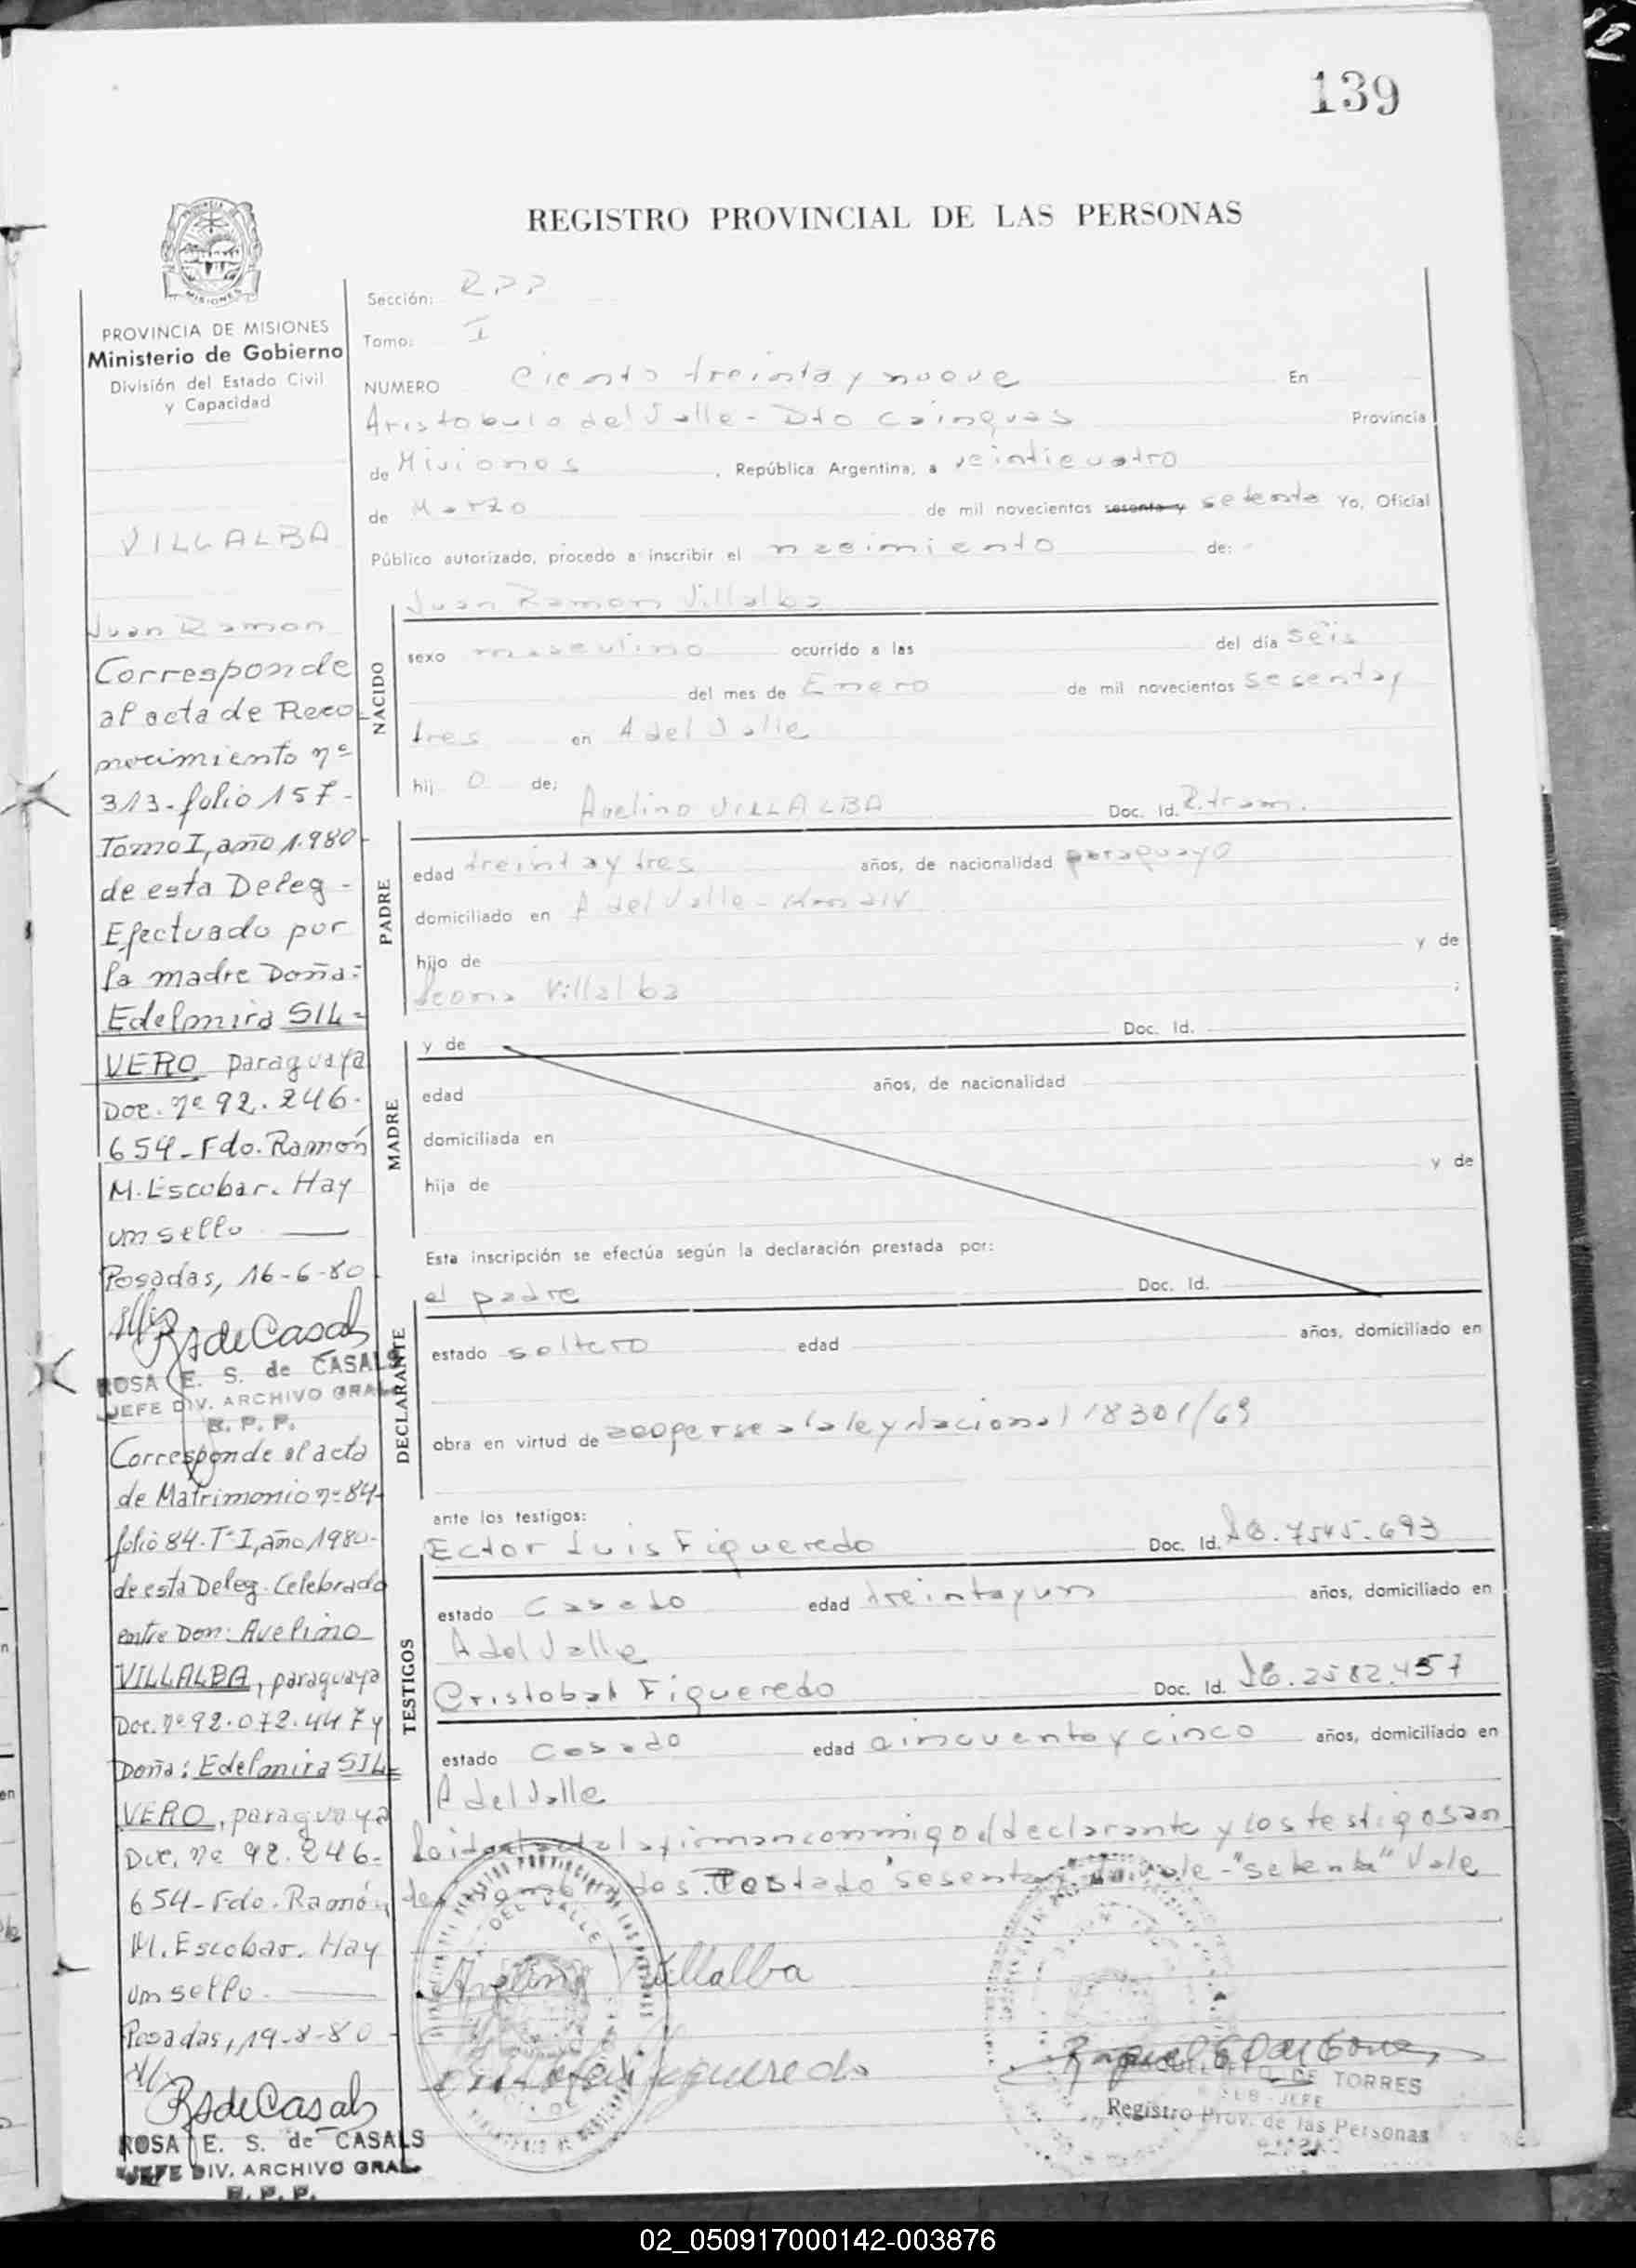 139
REGISTRO PROVINCIAL DE LAS PERSONAS
PROVINCIA DE MISIONES
Ministerio de Gobierno
División del Estado Civil
y Capacidad
VILLALBA
Juan Ramon
Corresponde
al acta de Reco
nocimiento nº
313-folio 157-
Tomo I, año 1.980-
de esta Deleg-
Efectuado por
la madre Doña:
Edelmira SIL-
VERO paraguaya
Doc. nº 92.246.
654-Fdo. Ramón
M. Escobar. Hay
um sello
Posadas, 16-6-80
RSdeCasals
ROSA E. S. de CASALS
JEFE DIV. ARCHIVO GRAL.
R. P. P.
Corresponde al acta
de Matrimonio nº 84-
folio 84-Tº I, año 1980-
de esta Deleg. Celebrado
entre Don: Avelino
VILLALBA, paraguayo
Doc. nº 92.072.447 y
Doña: Edelmira SIL-
VERO, paraguaya
Doc. nº 92.246.
654-Fdo. Ramón
M. Escobar. Hay
um sello.
Posadas, 19-8-80
RSdeCasals
ROSA E. S. de CASALS
JEFE DIV. ARCHIVO GRAL.
R. P. P.
Sección: RPP
Tomo: I
NUMERO Ciento treinta y nueve En
Aristobulo del Valle - Dto Cainguas Provincia
de Misiones, República Argentina, a veinticuatro
de Marzo de mil novecientos sesenta y setenta Yo, Oficial
Público autorizado, procedo a inscribir el nacimiento de:
Juan Ramon Villalba
NACIDO
sexo masculino ocurrido a las del día seis
del mes de Enero de mil novecientos sesenta y
tres en A del Valle
hij o de;
Avelino VILLALBA Doc. Id. R. tram.
PADRE
edad treinta y tres años, de nacionalidad paraguayo
domiciliado en A del Valle - Km 214
hijo de y de
Villalba ;
MADRE
y de Doc. Id.
edad años, de nacionalidad
domiciliada en
hija de y de
Esta inscripción se efectúa según la declaración prestada por:
el padre Doc. Id.
DECLARANTE
estado soltero edad años, domiciliado en
obra en virtud de acogerse a la ley Nacional 18301/69
ante los testigos:
TESTIGOS
Ector Luis Figueredo Doc. Id. 7545.693
estado Casado edad treinta y un años, domiciliado en
A del Valle
Cristobal Figueredo Doc. Id. 2582.457
estado Casado edad cincuenta y cinco años, domiciliado en
A del Valle
firman conmigo el declarante y los testigos an
Testado "sesenta vale - "setenta" Vale
Avelino Villalba
Figueredo
DE TORRES
SUB-JEFE
Registro Prov. de las Personas
02_050917000142-003876